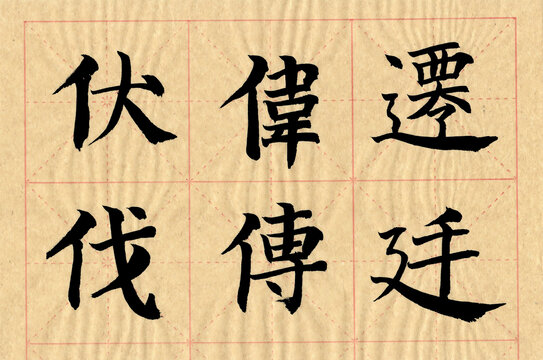 遷廷
偉傳
伏伐